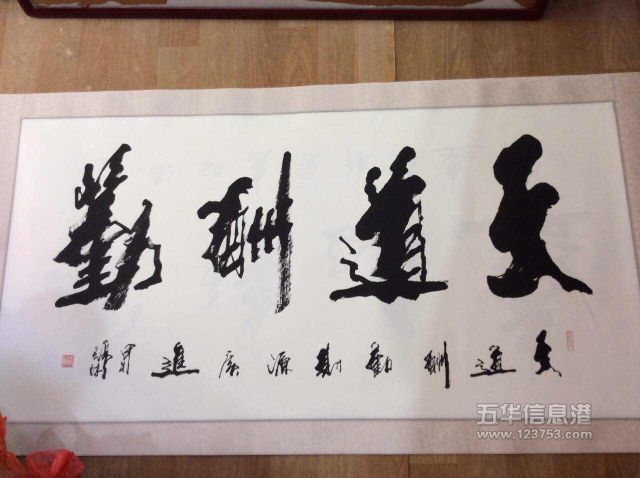 天道酬勤
天道酬勤财源广進
五华信息港
www.123753.com